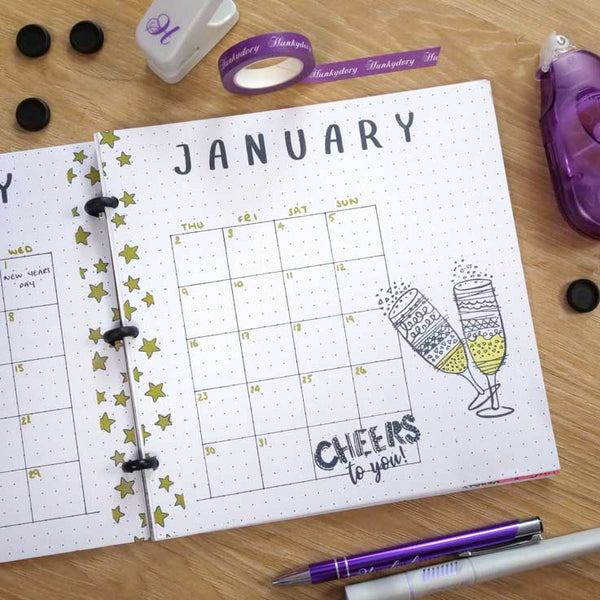 H
Hunkydory Hunkydory Hunkydory
Y
JANUARY
WED
THU FRI SAT SUN
1 2 3 4 5
NEW YEARS
DAY
8 9 10 11 12
15 16 17 18 19
22 23 24 25 26
29 30 31
CHEERS
to you!
Hunkydory